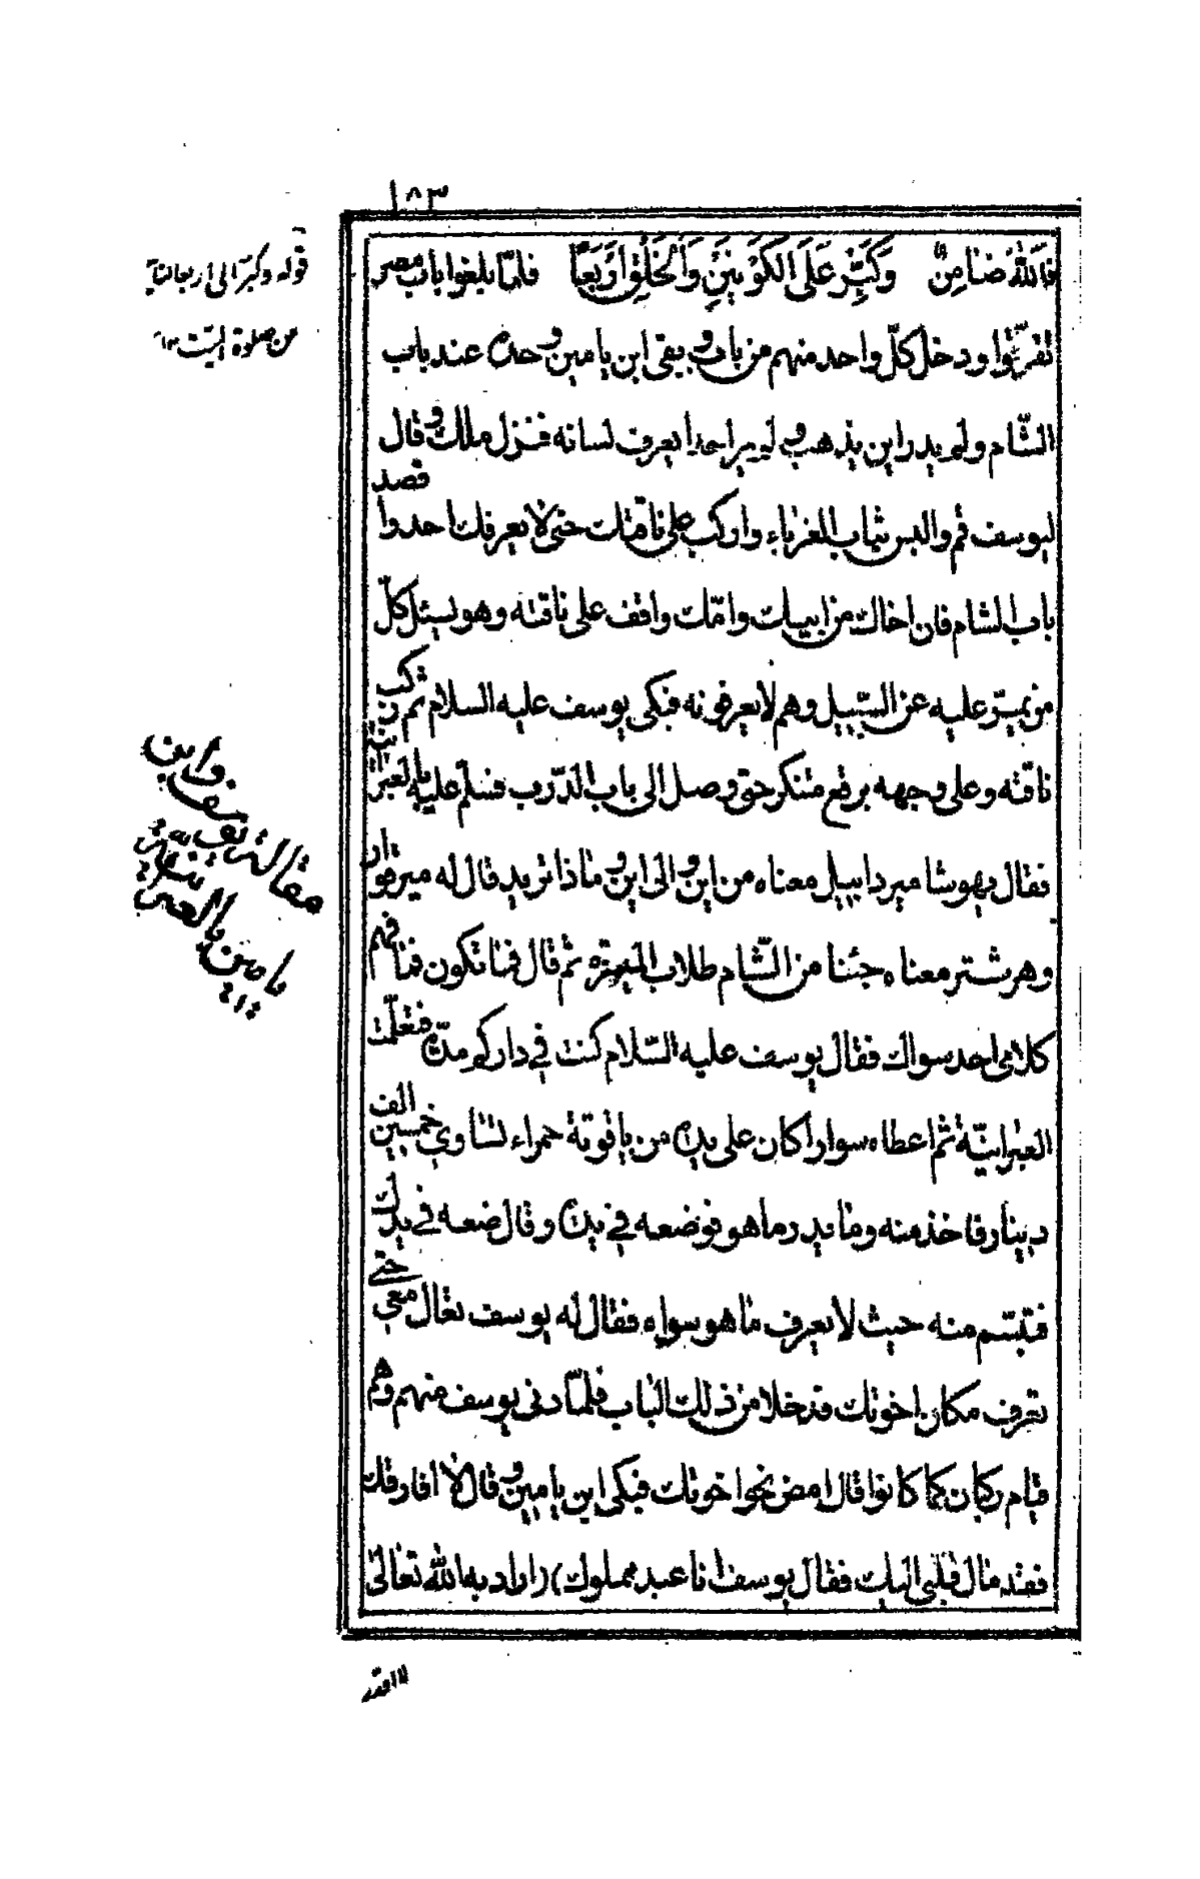 ١٨٣
فالله ضَامِنٌ وَكَبِّرْ عَلَى الكَوْنَيْنِ وَالْخَلْقِ اَرْبَعًا فلمّا بلغوا باب مصر
تفرّقوا ودخل كلّ واحد منهم من باب وبقى ابن يامين وحده عند باب
الشّام ولم يدر اين يذهب ولم ير احدا يعرف لسانه فنزل ملك وقال
ليوسف قم والبس ثياب الغرباء واركب على ناقتك حتى لا يعرفك احد واقصد
باب الشام فان اخاك من ابيك وامّك واقف على ناقته وهو يسئل كلّ
من يمرّ عليه عن السّبيل وهم لا يعرفونه فبكى يوسف عليه السلام ثم ركب
ناقته وعلى وجهه برقع متنكر حتى وصل الى باب الدّرب فسلّم عليه بالعبرانية
فقال يهوشا ميردابيل معناه من اين والى اين وماذا تريد قال له ميرقوار
وهرشتر معناه جئنا من الشّام طلاب الميرة ثم قال فما تكون فما فهم
كلامى احد سواك فقال يوسف عليه السّلام كنت في داركم مدّة فتعلّمت
العبرانيّة ثم اعطاه سوارا كان على يده من ياقوتة حمراء تساوي خمسين الف
دينار فاخذ منه وما يدر ما هو فوضعه في يده وقال ضعه في يدك
فتبسّم منه حيث لا يعرف ما هو سواه فقال له يوسف تعال معي حتى
تعرف مكان اخوتك فدخلا من ذلك الباب فلمّا دنى يوسف منهم وهم
قيام ركبان كما كانوا قال امض نحو اخوتك فبكى ابن يامين وقال لا افارقك
فقد مال قلبي اليك فقال يوسف انا عبد مملوك) (اراد به الله تعالى
لا اقدر
قوله وكبّر الى اربعا كناية
من صلوة الميّت ١٢
مقالة يوسف وابن
يامين بالعبرانية